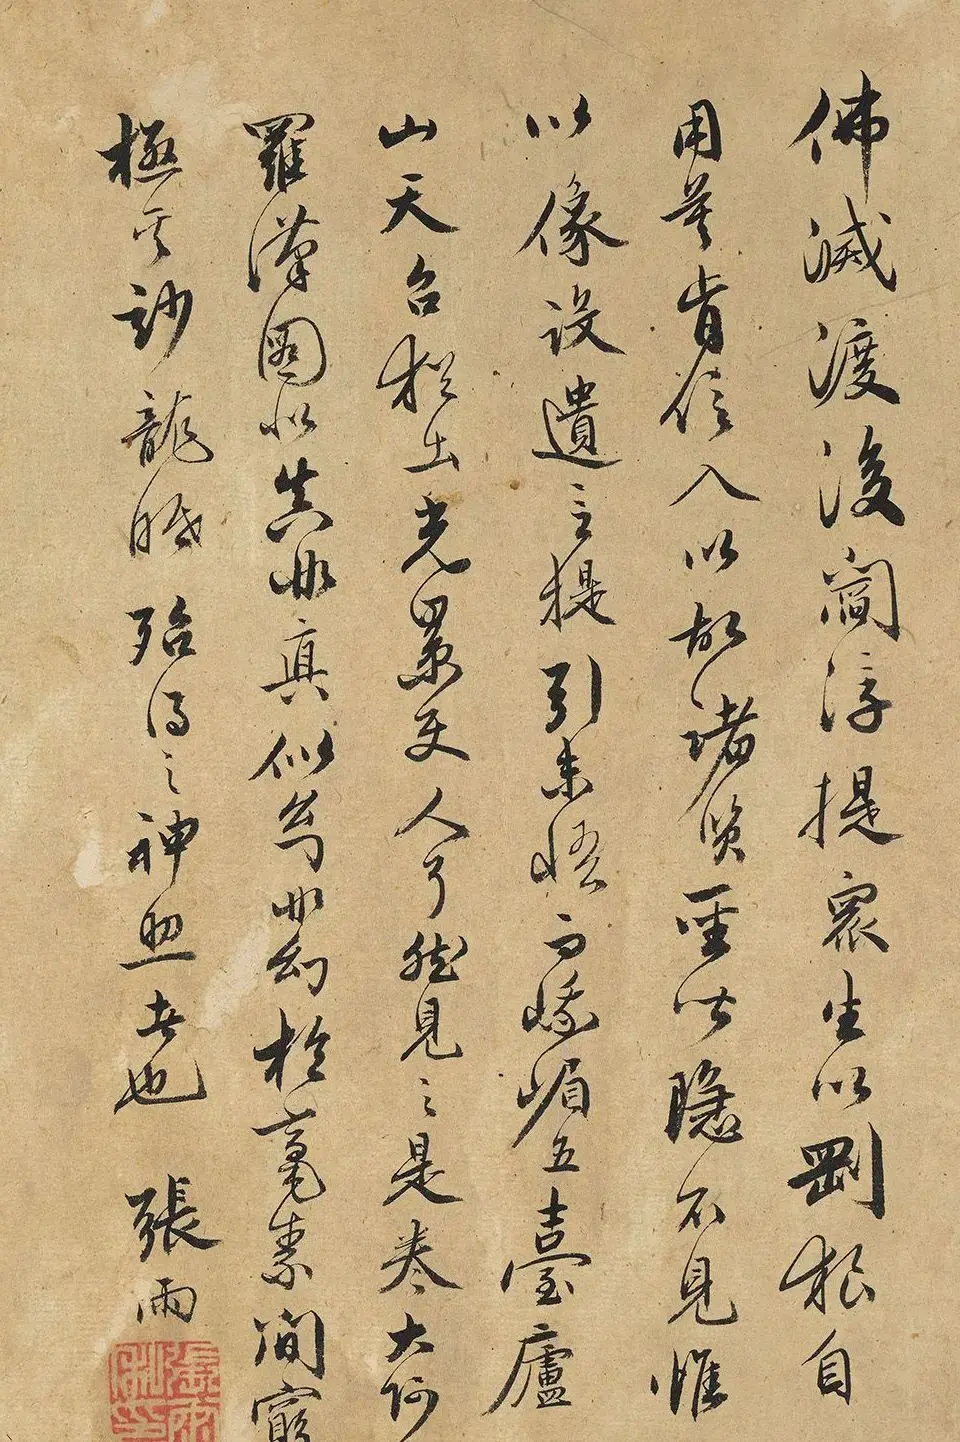 佛滅渡後閻浮提眾生以剛根自
用莫肯信入以故諸賢聖皆隱不見惟
以像設遺言提引未悟而峨嵋五臺廬
山天台猶出光景更人了然見之是卷大阿
羅漢圖非真非真似幻非幻於毫素間窮
極其妙龍眠殆得之神照者也
張雨